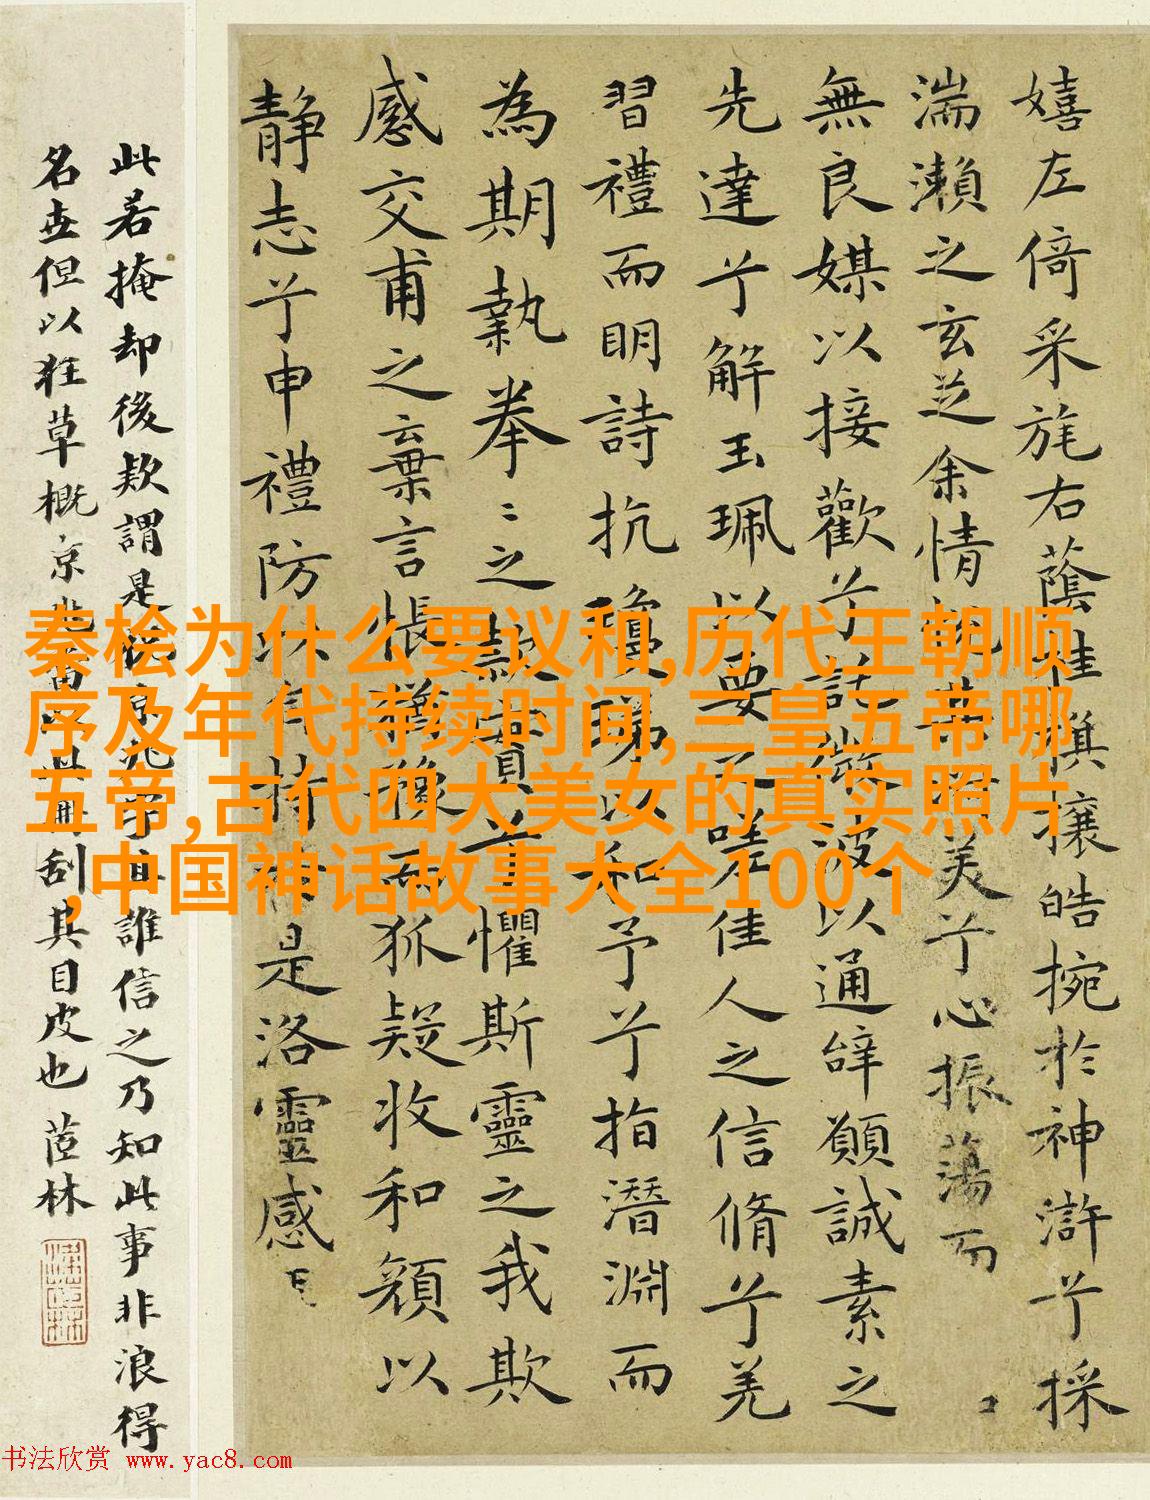 嬉左倚采旄右蔭桂旗攘皓捥於神滸兮採
湍瀨之玄芝余情悅其淑美兮心振蕩而
無良媒以接歡兮託微波以通辭願誠素之
先達兮解玉珮以要之嗟佳人之信脩兮羌
習禮而明詩抗瓊珶以和予兮指潛淵而
為期執拳〻之款實兮懼斯靈之我欺
感交甫之棄言悵猶豫而狐疑收和顏以
靜志兮申禮防以自持於是洛靈感
此若掩却後欵謂是
誰信之乃知此事非浪得
名世但以狂草概京兆
刮其目皮也 茝林
秦桧为什么要议和,历代王朝顺
序及年代持续时间,三皇五帝哪
五帝,古代四大美女的真实照片
,中国神话故事大全100个
书法欣赏 www.yac8.com